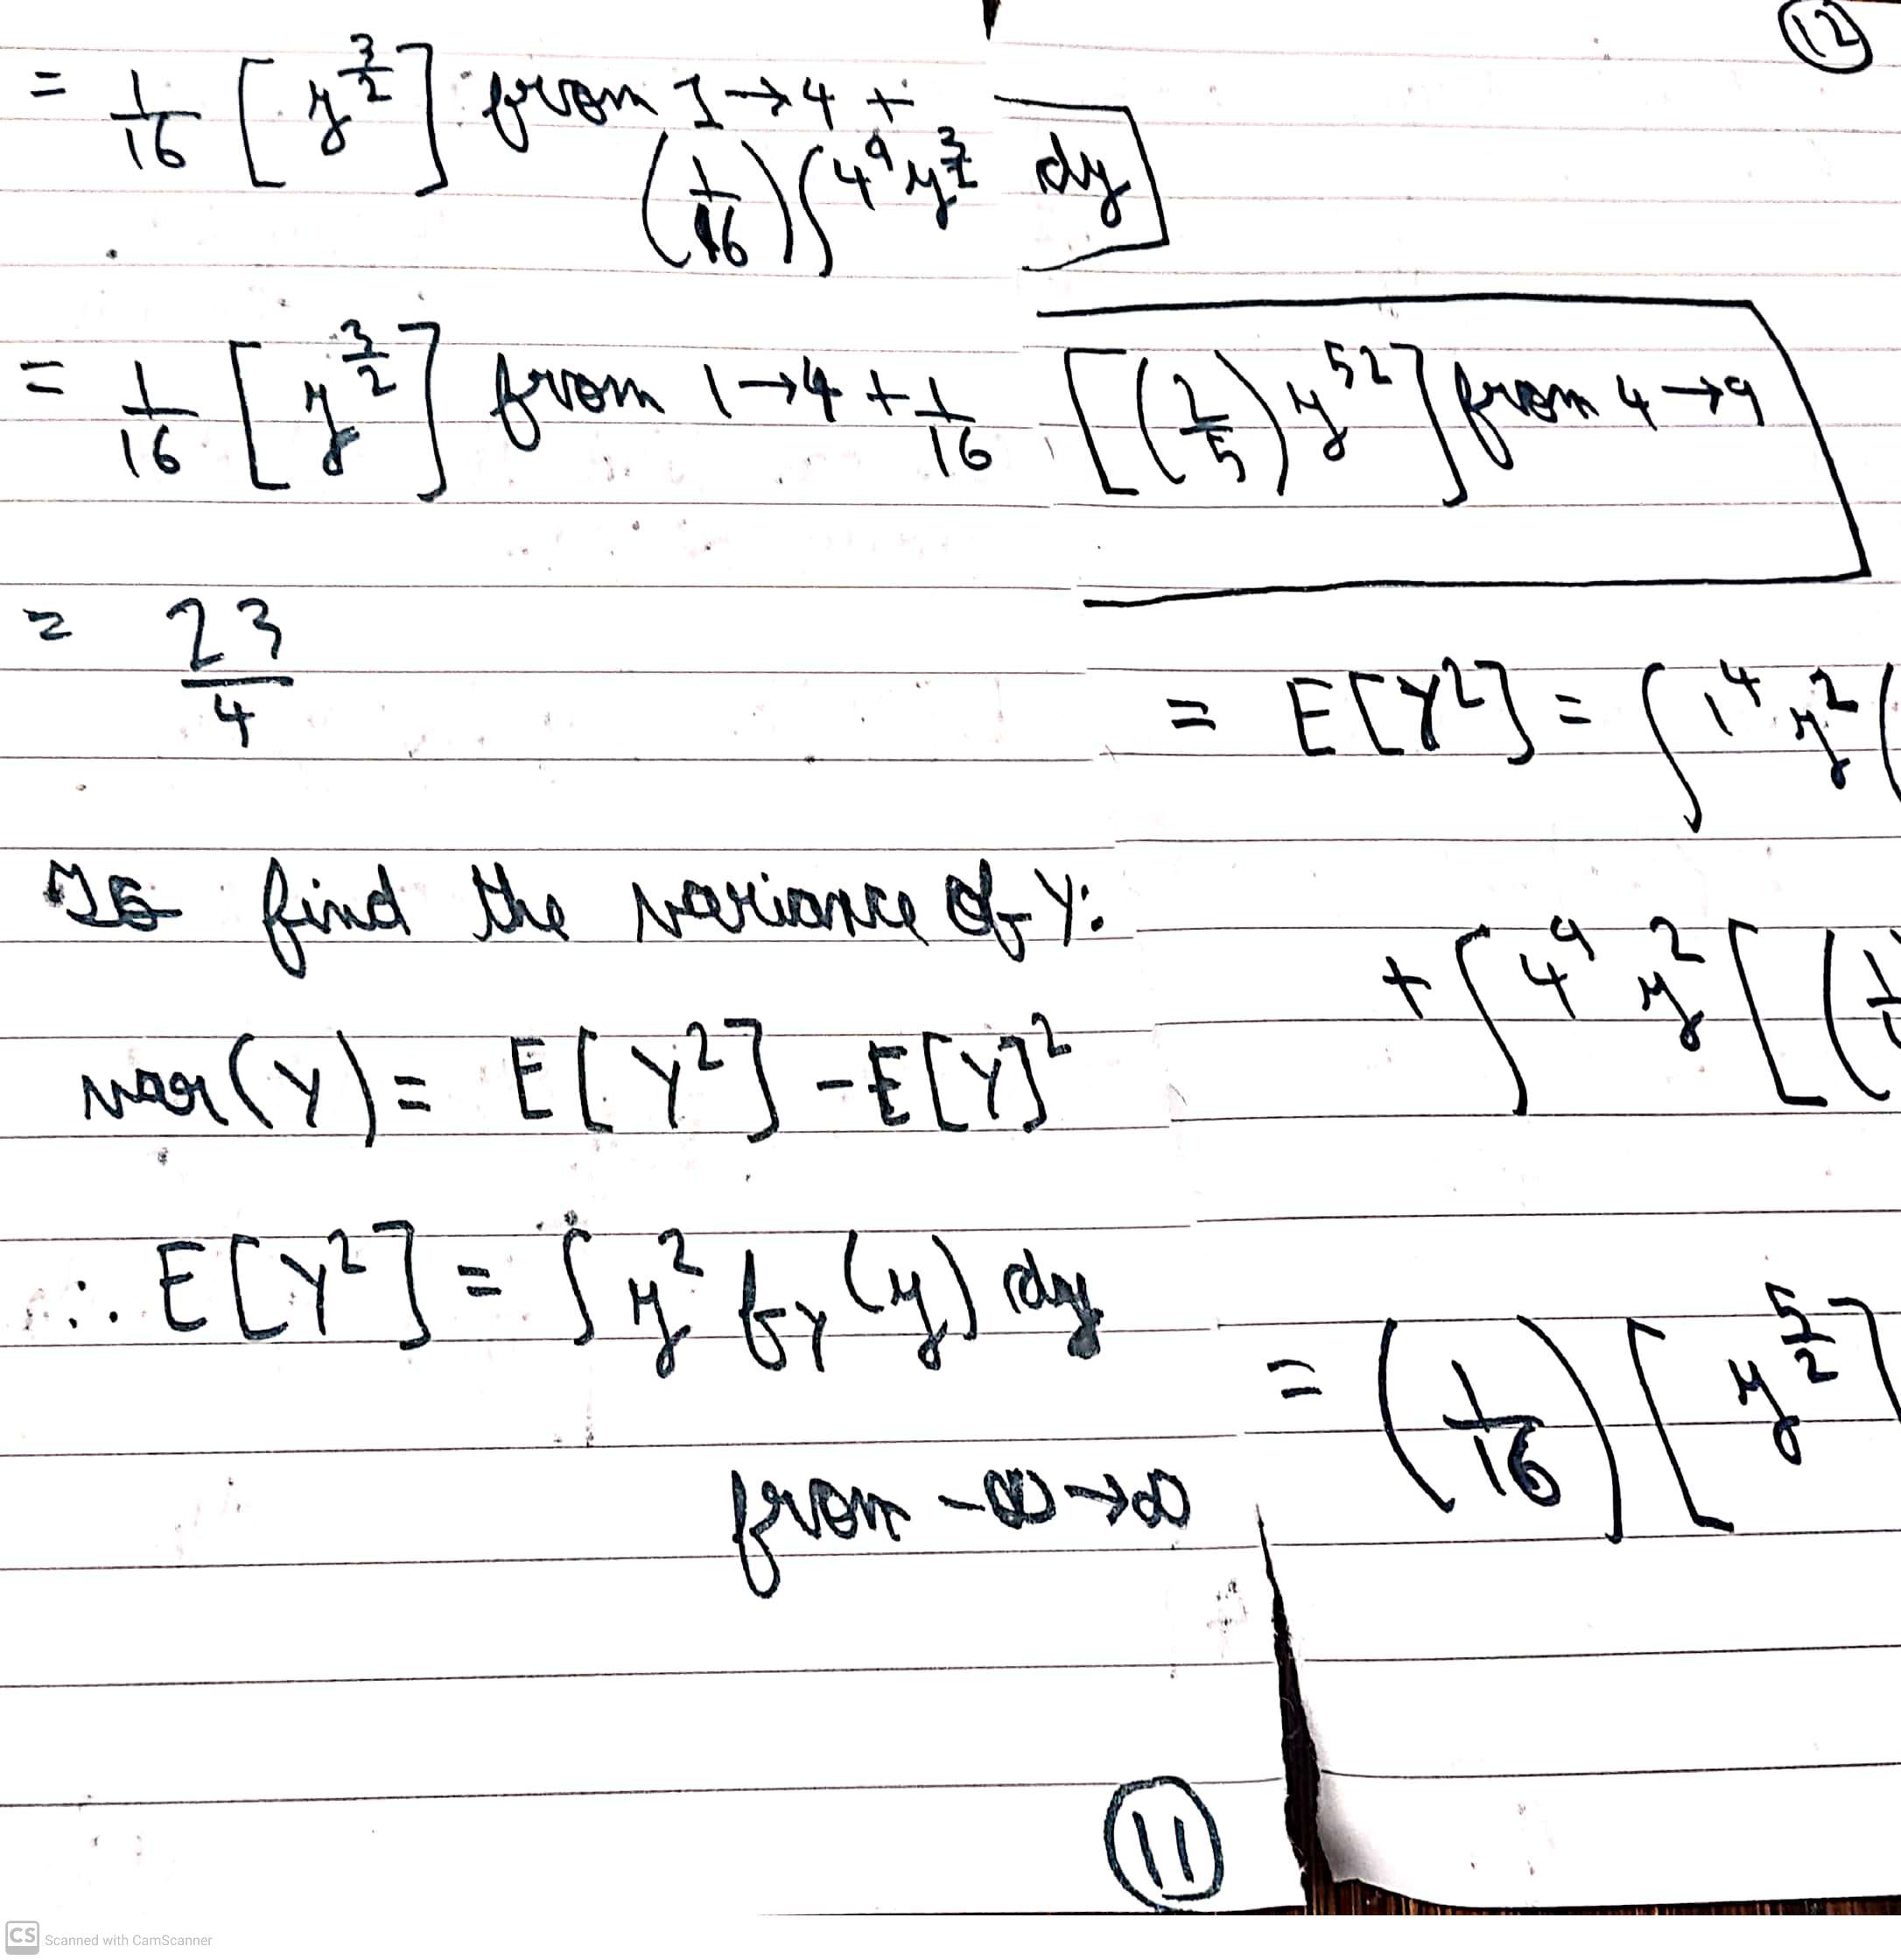 = 1/16 [y^3/2] from 1→4 +
(1/16) ∫4^9 y^3/2 dy]
= 1/16 [y^3/2] from 1→4 + 1/16 [(2/5) y^52] from 4→9
= 23/4
To find the variance of Y:
var(Y) = E[Y²] - E[Y]²
∴ E[Y²] = ∫ y² f_Y(y) dy
from -∞→∞
11
12
= E[Y²] = ∫1^4 y² (
+ ∫4^9 y² [(
= (1/16) [y^5/2]
CS Scanned with CamScanner